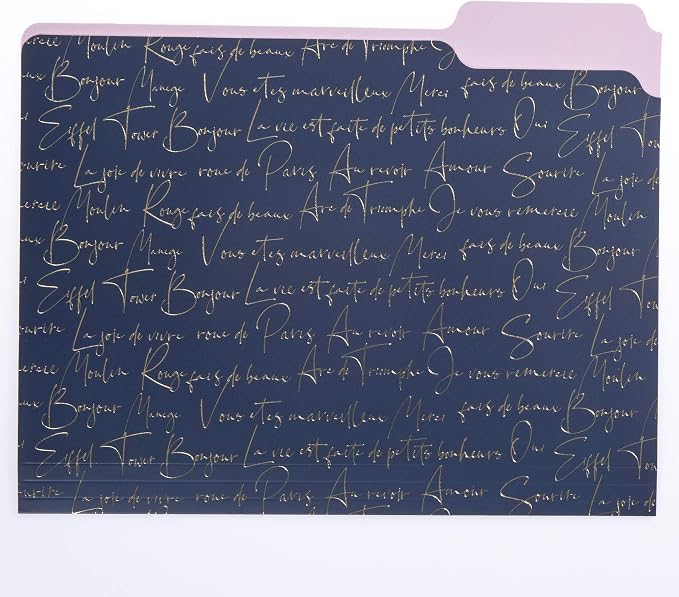 ercie Moulin Rouge fais de beaux Arc de Triomphe
ux Bonjour Manege Vous etes marveilleux Merci fais de beaux Bonjour
Eiffel Tower Bonjour La vie est faite de petits bonheurs Oui Eiffel Tow
ourire La joie de vivre roue de Paris Au revoir Amour Sourire La joie de
ercie Moulin Rouge fais de beaux Arc de Triomphe Je vous remercie Moulin
ux Bonjour Manege Vous etes marveilleux Merci fais de beaux Bonjour
Eiffel Tower Bonjour La vie est faite de petits bonheurs Oui Eiffel Tow
ourire La joie de vivre roue de Paris Au revoir Amour Sourire La joie de
ercie Moulin Rouge fais de beaux Arc de Triomphe Je vous remercie Moulin
ux Bonjour Manege Vous etes marveilleux Merci fais de beaux Bonjour
Eiffel Tower Bonjour La vie est faite de petits bonheurs Oui Eiffel Tow
ourire La joie de vivre roue de Paris Au revoir Amour Sourire La joie de